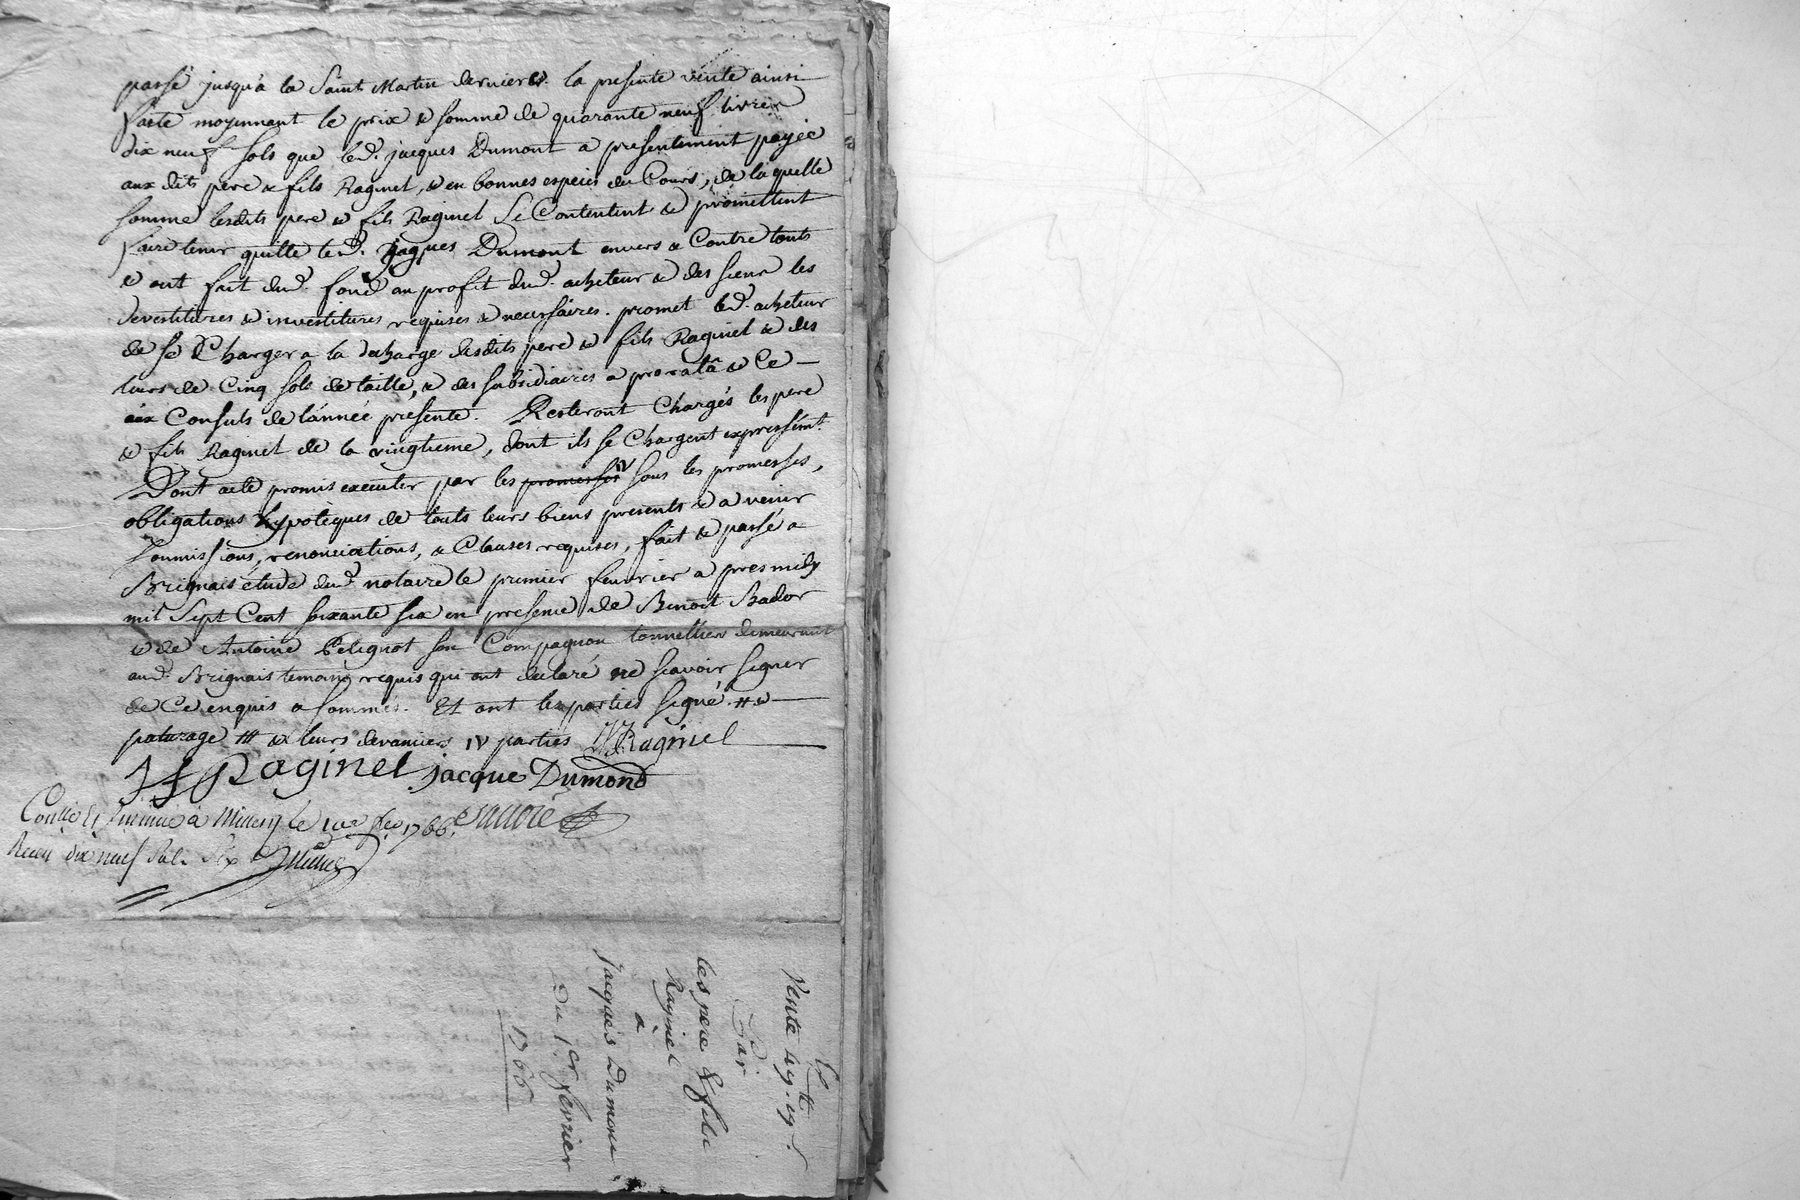 passé jusqu'à la Saint Martin derniere. la presente vente ainsi
faite moyennant le prix & somme de quarante neuf livres
dix neuf sols que led. jacques Dumont a presentement payée
aux dits pere & fils Raginel, & en bonnes especes du Cours, de laquelle
somme lesdits pere & fils Raginel Se Contentent & promettent
faire tenir quitte led. jaques Dumont envers & Contre touts
& ont fait dud. fond au profit dud. acheteur & des siens les
devestitures & investitures requises & necessaires. promet led. acheteur
de se Charger a la decharge desdits pere & fils Raginel & des
leurs de Cinq sols de taille, & des subsidiaires a pro rata & Ce
aux Consuls de l'année presente. Resteront Chargés les pere
& fils Raginel de la vingtieme, dont ils se Chargent expressémt.
Dont acte promis executer par les promesses IV sous les promesses,
obligations hypoteques de touts leurs biens presents & a venir
soumissions, renonciations, & Clauses requises, fait & passé a
Brignais étude dud. notaire le premier fevrier a pres midy
mil Sept Cent soixante six en presence de Benoit Bador
& de Antoine Pelignot son Compagnon tonnellier demeurant
aud. Brignais temoins requis qui ont declaré ne scavoir signer
de Ce enquis & sommés. Et ont les parties signé. # &
paturage ## & leurs devanciers IV parties Raginel
Raginel jacque Dumond
à Millery le 1766.
Reçu dix neuf sols six
Vente 49.tt 19s.
Par
les pere & fils
Raginel
à
Jacques Dumont
Du 1er fevrier
1766